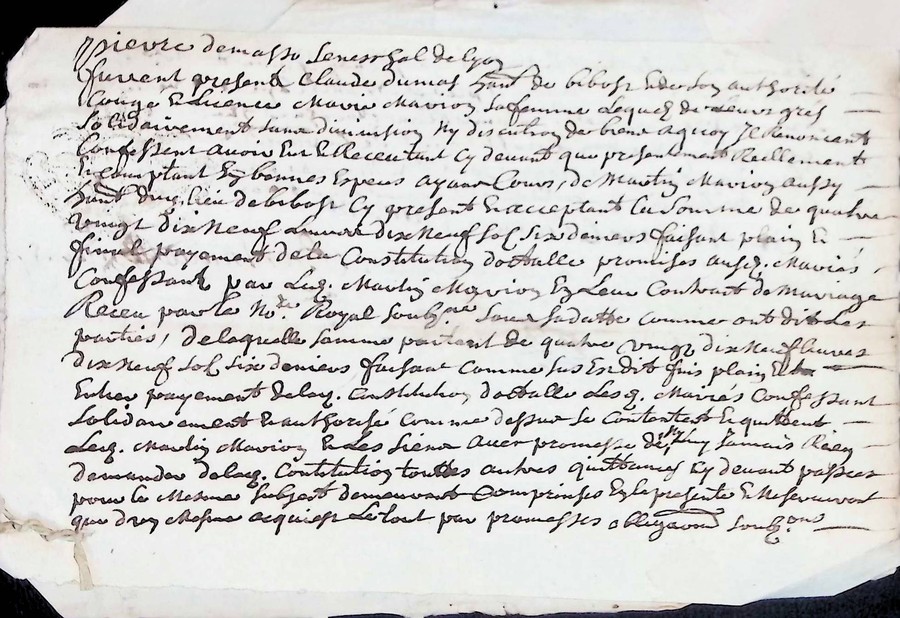 pierre demasso seneschal de lyon
furent present Claude dumas hant de bibost Et de son authorité
Conge Et licence Marie Marion sa femme Lequelz de Leurs grés
solidairement sans division ny discution de biens a quoy Ilz Renoncent
Confessent avoir Eut Et Receu tant Cy devant que presentement Reellement
Et comptant En bonnes Especes ayant Cours, de Martin Marion aussy
hant dud. lieu de bibost Cy present Et acceptant La Somme de quatre
vingt Dix Neuf Livres dix Neuf sol six deniers faisant plain Et
final payement de la Constitution dottalle promises ausd. Mariés
Confessant par Led. Martin Marion En Leur Contract de Mariage
Receu par le Nore. Royal soubzné sous sa datte comme ont dit Les
parties, de laquelle somme partant de quatre vingt dix Neuf livres
dix Neuf sol six deniers faisant comme sus Est dit fins plain Et
Entier payement de lad. Constitution dottalle Lesd. Mariés Confessant
solidairement Et authorisé comme dessus se Contentent Et quittent
Led. Martin Marion Et Les siens avec promesse de ny jamais Rien
demander de lad. Contitution touttes autres quittances Cy devant passées
pour le Mesme subject demeurant Comprinses En la presente Et Ne serviront
que d'un Mesme acquit Le tout par promesses obligaons soubzons